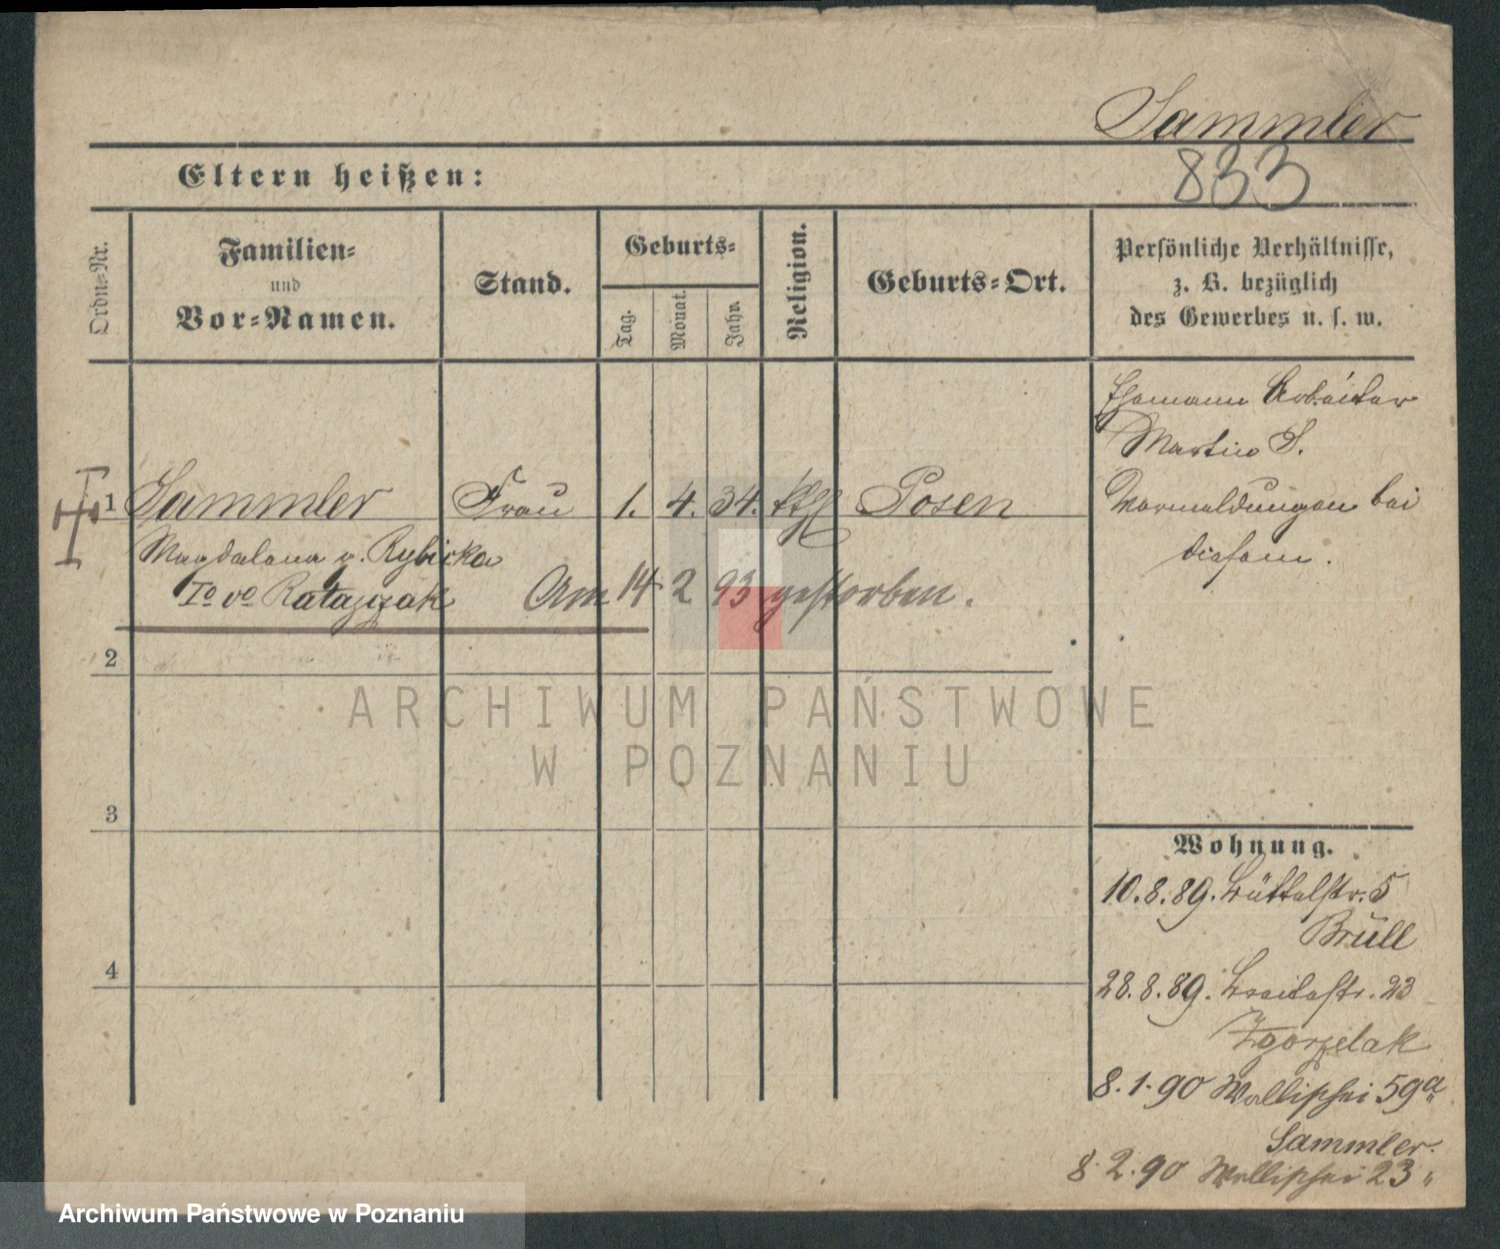 Sammler
833
Eltern heißen:
Ordn.-Nr.
Familien-
und
Vor-Namen.
Stand.
Geburts-
Tag.
Monat.
Jahr.
Religion.
Geburts-Ort.
Persönliche Verhältnisse,
z. B. bezüglich
des Gewerbes u. s. w.
Ehemann Arbeiter
Martin S.
Vormeldungen bei
diesem.
1 Sammler Frau 1. 4. 34. kth Posen
Magdalena g. Rybicka
Io vo Ratajczak Am 14 2 93 gestorben.
2
3
4
ARCHIWUM PAŃSTWOWE
W POZNANIU
Wohnung.
10.8.89. Büttelstr. 5
Brüll
28.8.89. Breitestr. 23
Zgorzelak
8.1.90 Wallischei 59a
Sammler.
8.2.90 Wallischei 23
Archiwum Państwowe w Poznaniu